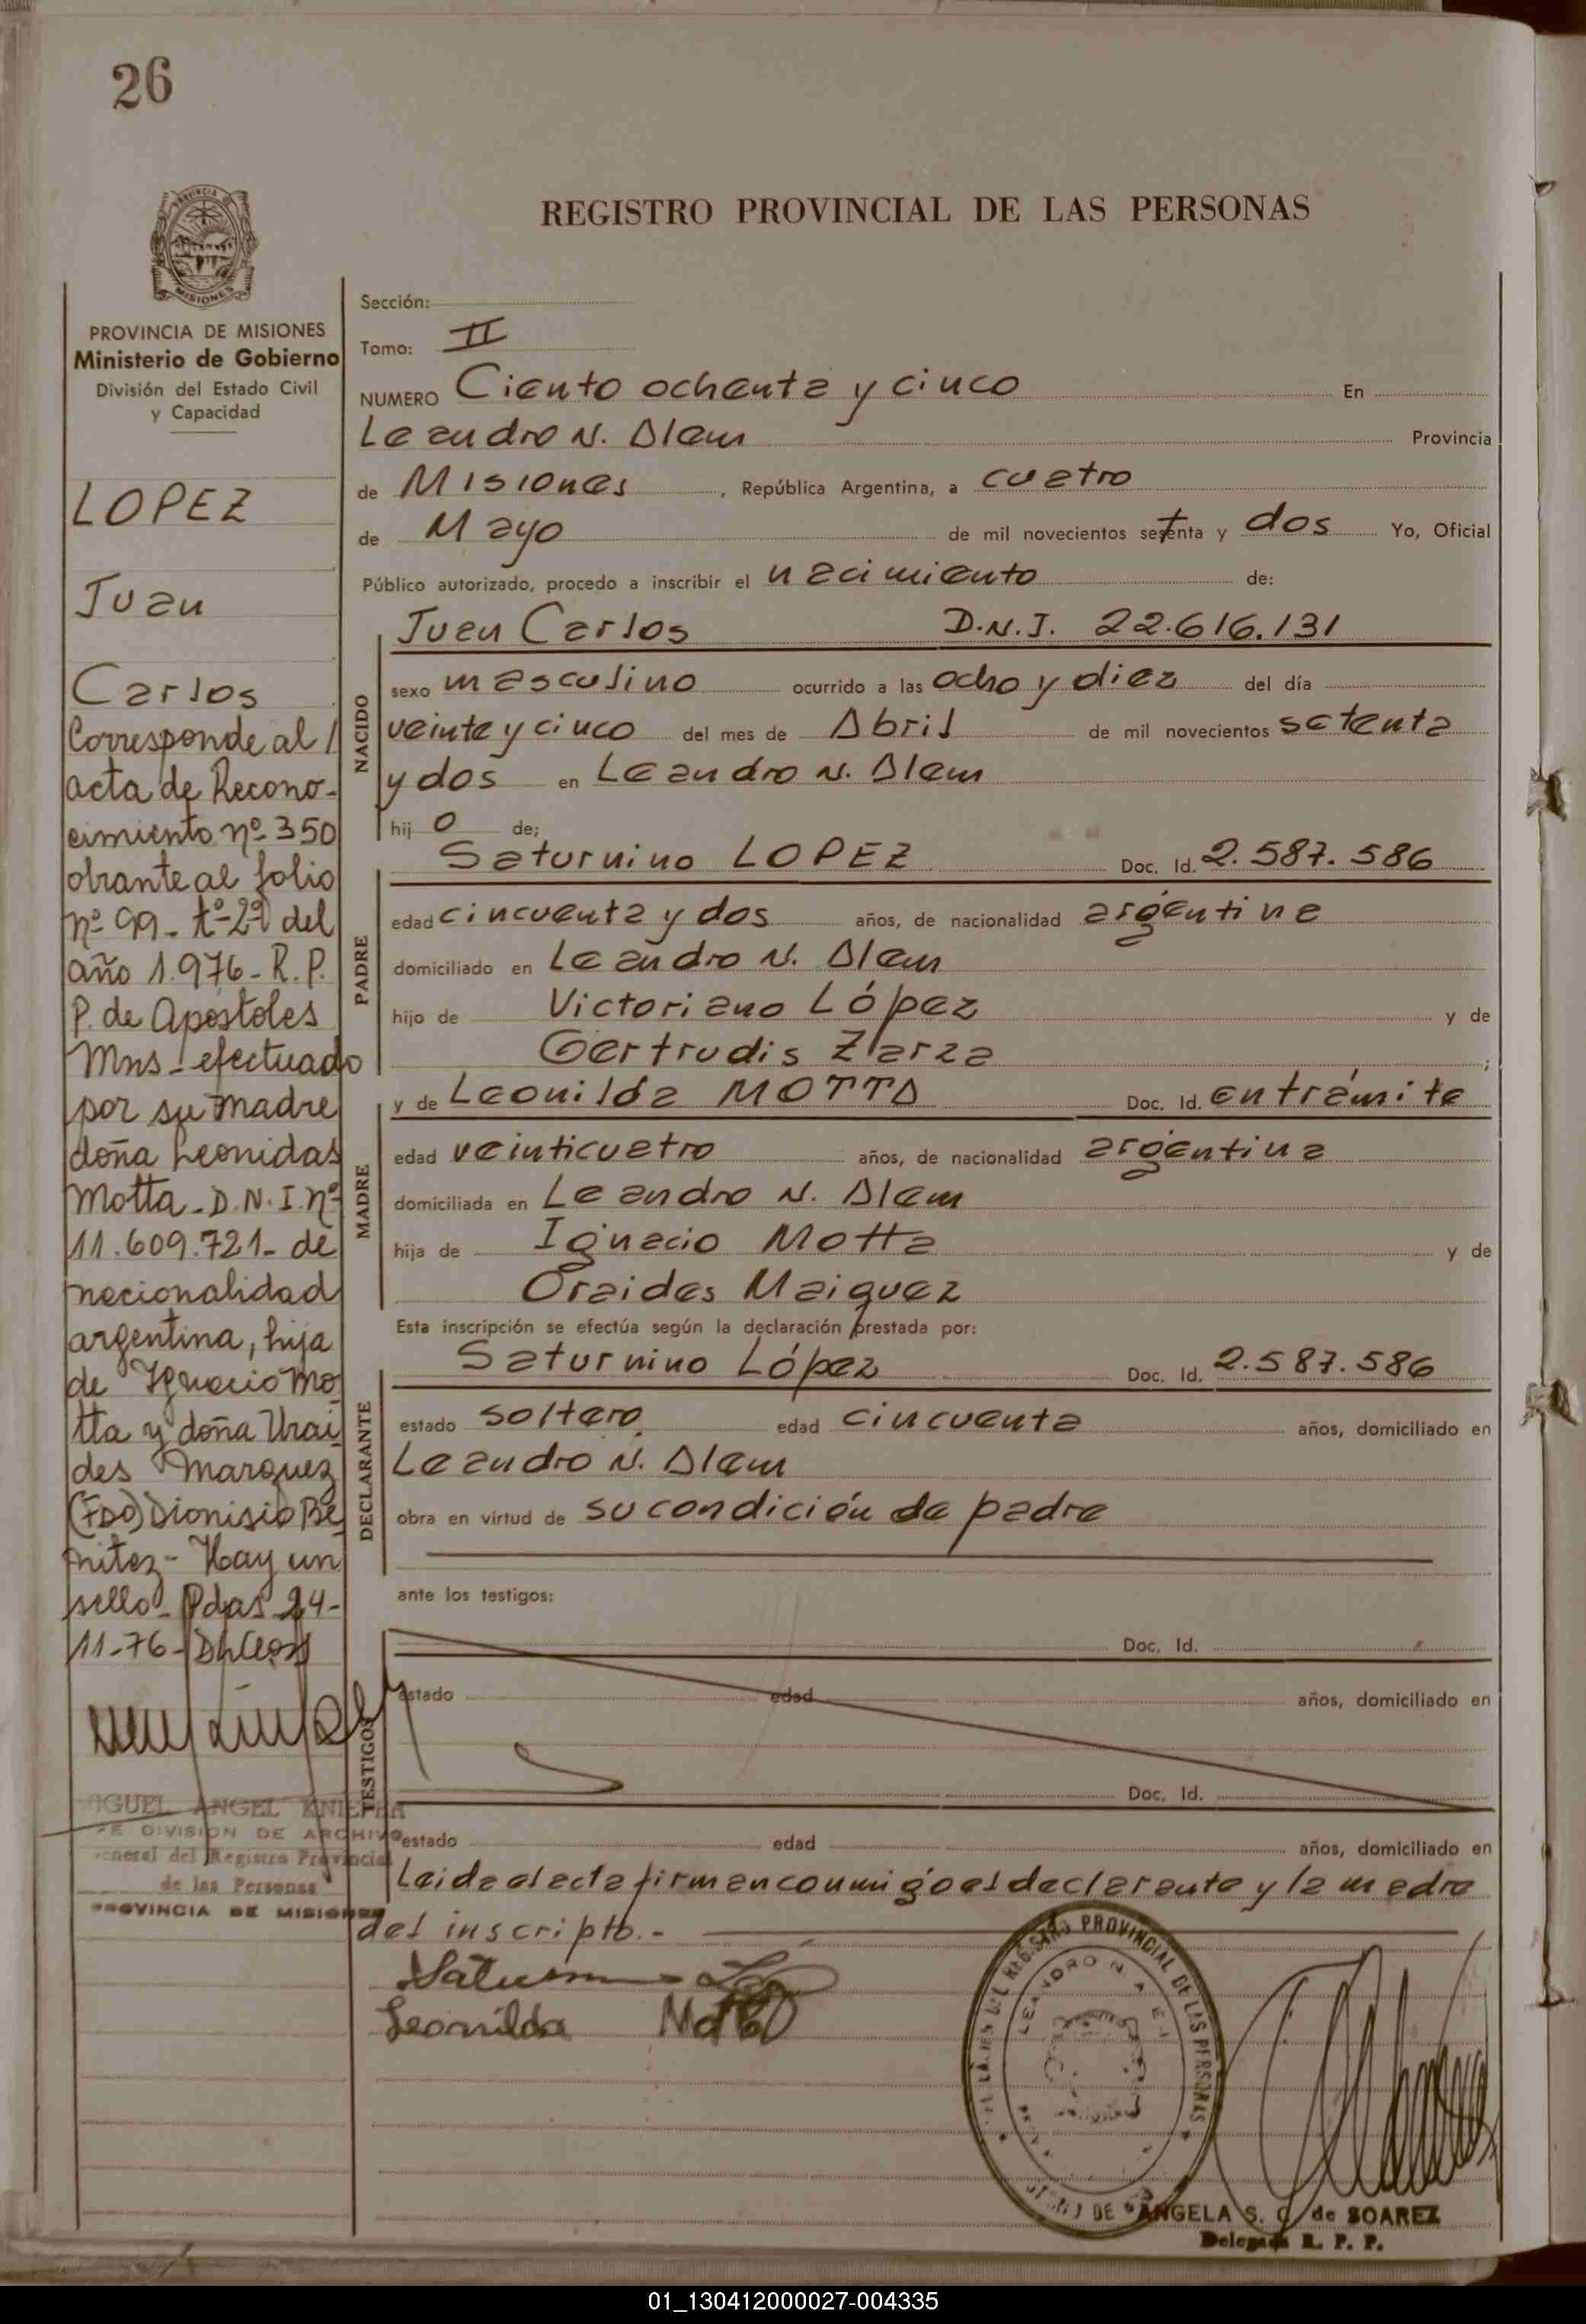 26
REGISTRO PROVINCIAL DE LAS PERSONAS
PROVINCIA DE MISIONES
Ministerio de Gobierno
División del Estado Civil
y Capacidad
LOPEZ
Juan
Carlos
Corresponde al /
acta de Recono-
cimiento nº 350
obrante al folio
nº 99 - tº 2º del
año 1.976 - R. P.
P. de Apóstoles
Mns - efectuado
por su madre
doña Leonidas
Motta - D. N. I. nº
11.609.721 - de
nacionalidad
argentina, hija
de Ignacio Mo
tta y doña Urai
des Marquez
(FDO) Dionisio Be
nitez - Hay un
sello - Pdas 24-
11-76 -
MIGUEL ANGEL
DIVISION DE ARCHIVO
General del Registro Provincial
de las Personas
PROVINCIA DE MISIONES
Sección:
Tomo: II
NUMERO Ciento ochenta y cinco En
Leandro N. Alem Provincia
de Misiones, República Argentina, a cuatro
de Mayo de mil novecientos setenta y dos Yo, Oficial
Público autorizado, procedo a inscribir el nacimiento de:
Juan Carlos D.N.I. 22.616.131
NACIDO
sexo masculino ocurrido a las ocho y diez del día
veinte y cinco del mes de Abril de mil novecientos setenta
y dos en Leandro N. Alem
hij o de;
Saturnino LOPEZ Doc. Id. 2.587.586
PADRE
edad cincuenta y dos años, de nacionalidad argentina
domiciliado en Leandro N. Alem
hijo de Victoriano López y de
Gertrudis Zarza ;
y de Leonilda MOTTA Doc. Id. en trámite
MADRE
edad veinticuatro años, de nacionalidad argentina
domiciliada en Leandro N. Alem
hija de Ignacio Motta y de
Oraides Maiquez
Esta inscripción se efectúa según la declaración prestada por:
Saturnino López Doc. Id. 2.587.586
DECLARANTE
estado soltero edad cincuenta años, domiciliado en
Leandro N. Alem
obra en virtud de su condición de padre
ante los testigos:
Doc. Id.
TESTIGOS
estado edad años, domiciliado en
Doc. Id.
estado edad años, domiciliado en
Leida el acta firman conmigo el declarante y la madre
del inscripto.-
Saturnino
Leonilda Motta
REGISTRO PROVINCIAL DE LAS PERSONAS
LEANDRO N. ALEM
ANGELA S. C. de SOAREZ
Delegada R. P. P.
01_130412000027-004335